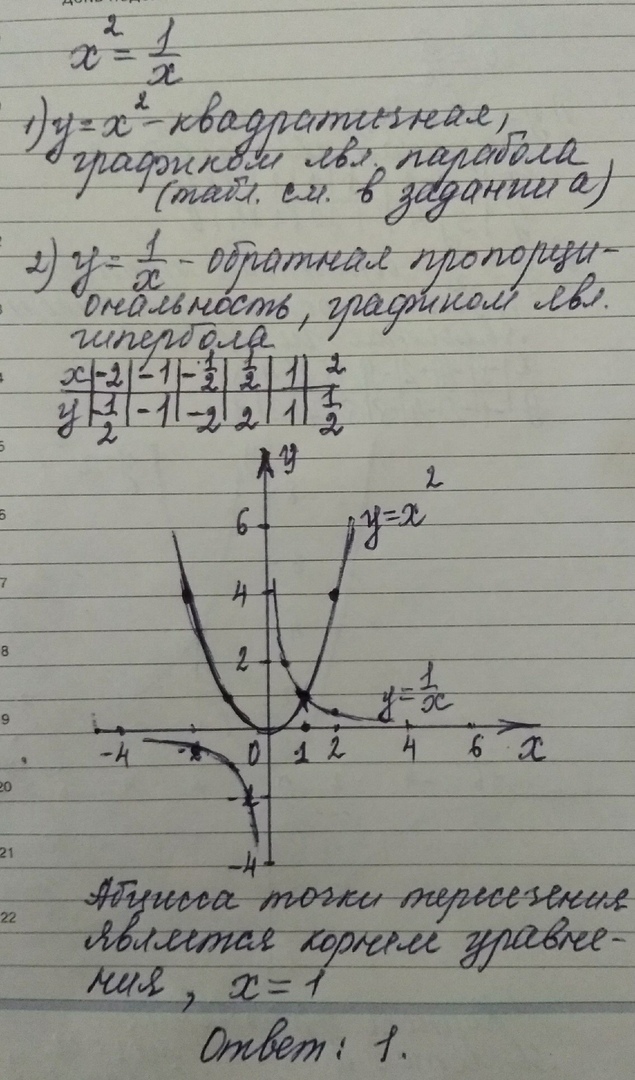 x² = 1/x
1) y = x² - квадратичная,
графиком явл. парабола
(табл. см. в задании а)
2) y = 1/x - обратная пропорци-
ональность, графиком явл.
гипербола
x | -2 | -1 | -1/2 | 1/2 | 1 | 2
y | -1/2 | -1 | -2 | 2 | 1 | 1/2
y
y = x²
6
4
2
y = 1/x
-4 -2 0 1 2 4 6 x
-2
-4
Абцисса точки пересечения
является корнем уравне-
ния, x = 1
Ответ: 1.
7
8
9
20
21
22